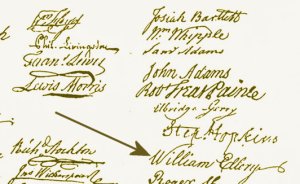 Wm Floyd
Phil. Livingston
Frans. Lewis
Lewis Morris
Richd. Stockton
Jno Witherspoon
Josiah Bartlett
Wm Whipple
Saml Adams
John Adams
Robt Treat Paine
Elbridge Gerry
Step. Hopkins
William Ellery
Roger